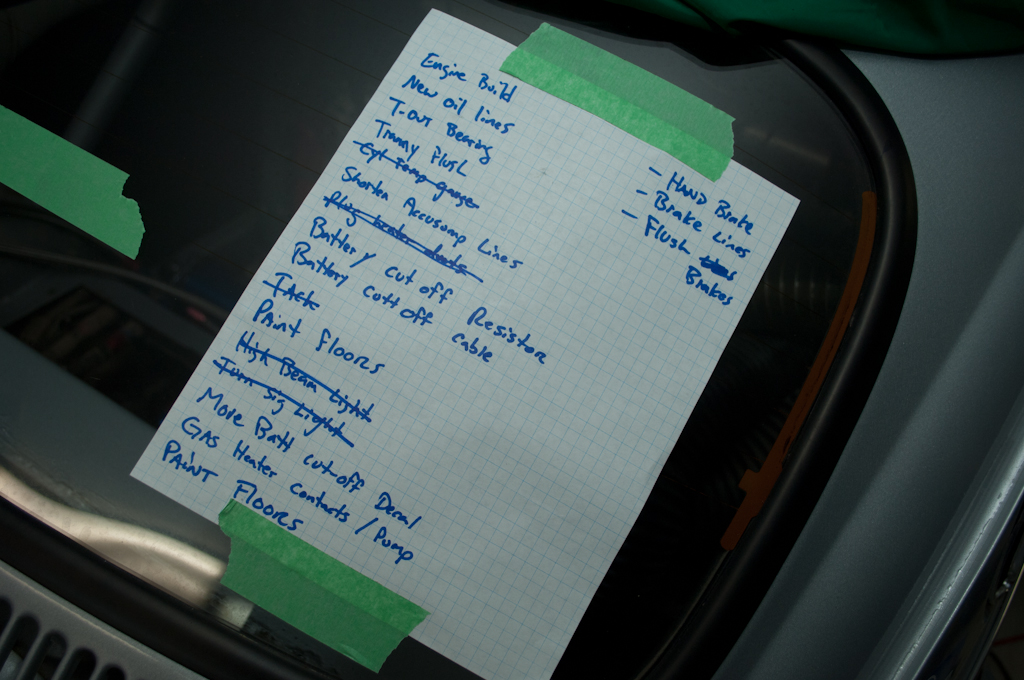 Engine Build
New oil lines
T-out Bearing
Tranny Flush
Cyl Temp gauge
Shorten Accusump Lines
Plug
Battery cut off Resistor
Battery cutt off cable
Jack
Paint Floors
High Beam Light
Turn Sig Light
Move Batt cutoff Decal
GAS Heater contacts / Pump
PAiNT FlOORS
- HAND Brake
- Brake Lines
- Flush
Brakes